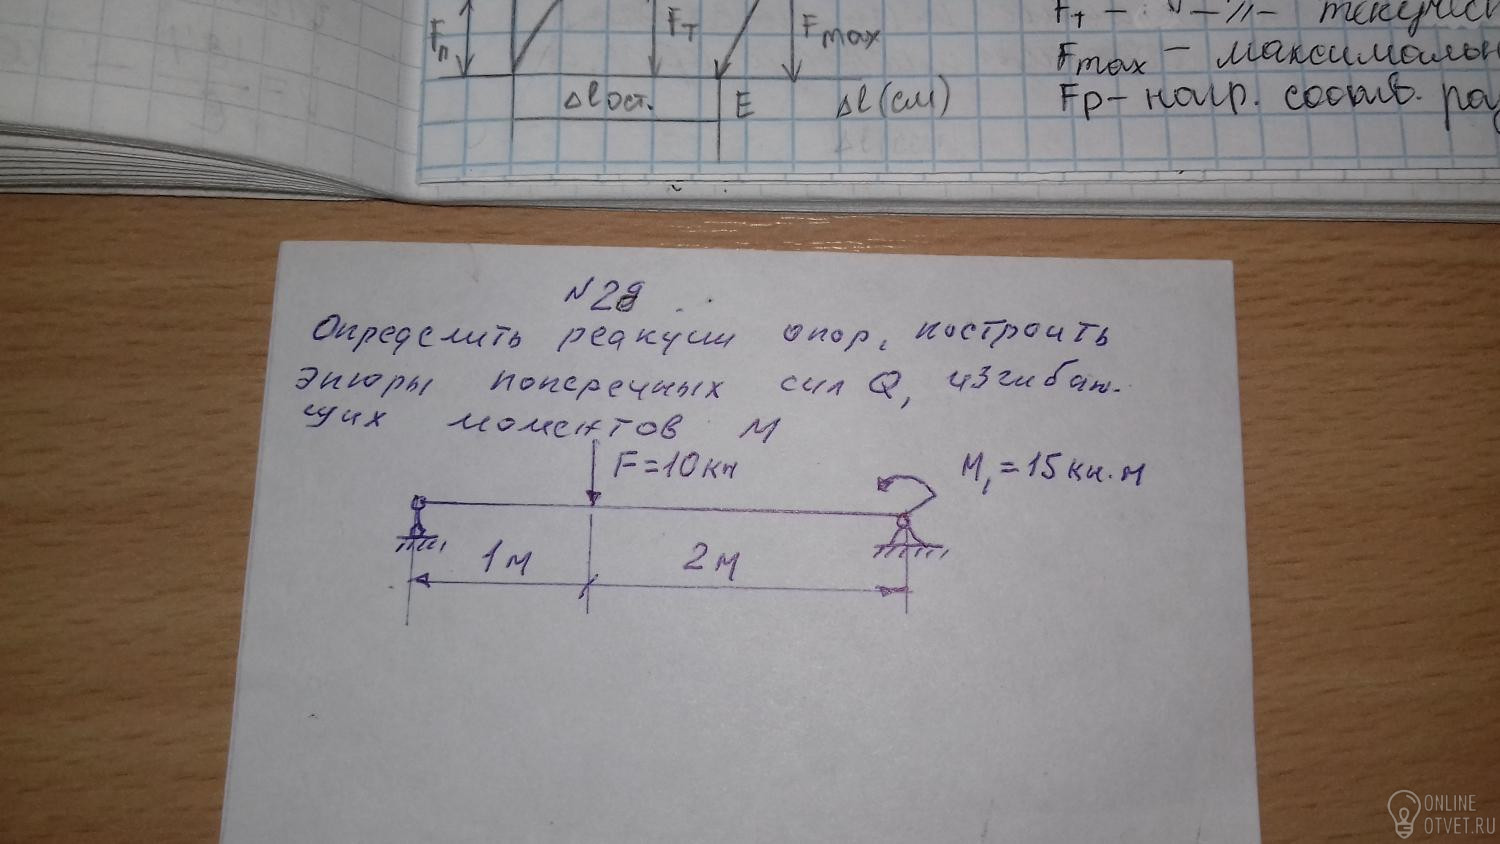 Fп
Fт
Fmax
Δlост.
E
Δl(см)
Fт - -//-
Fmax -
Fр - нагр. соотв.
N28
Определить реакции опор, построить
эпюры поперечных сил Q, изгибаю-
щих моментов M
F=10кн
M₁=15кн·м
1м
2м
ONLINE
OTVET.RU